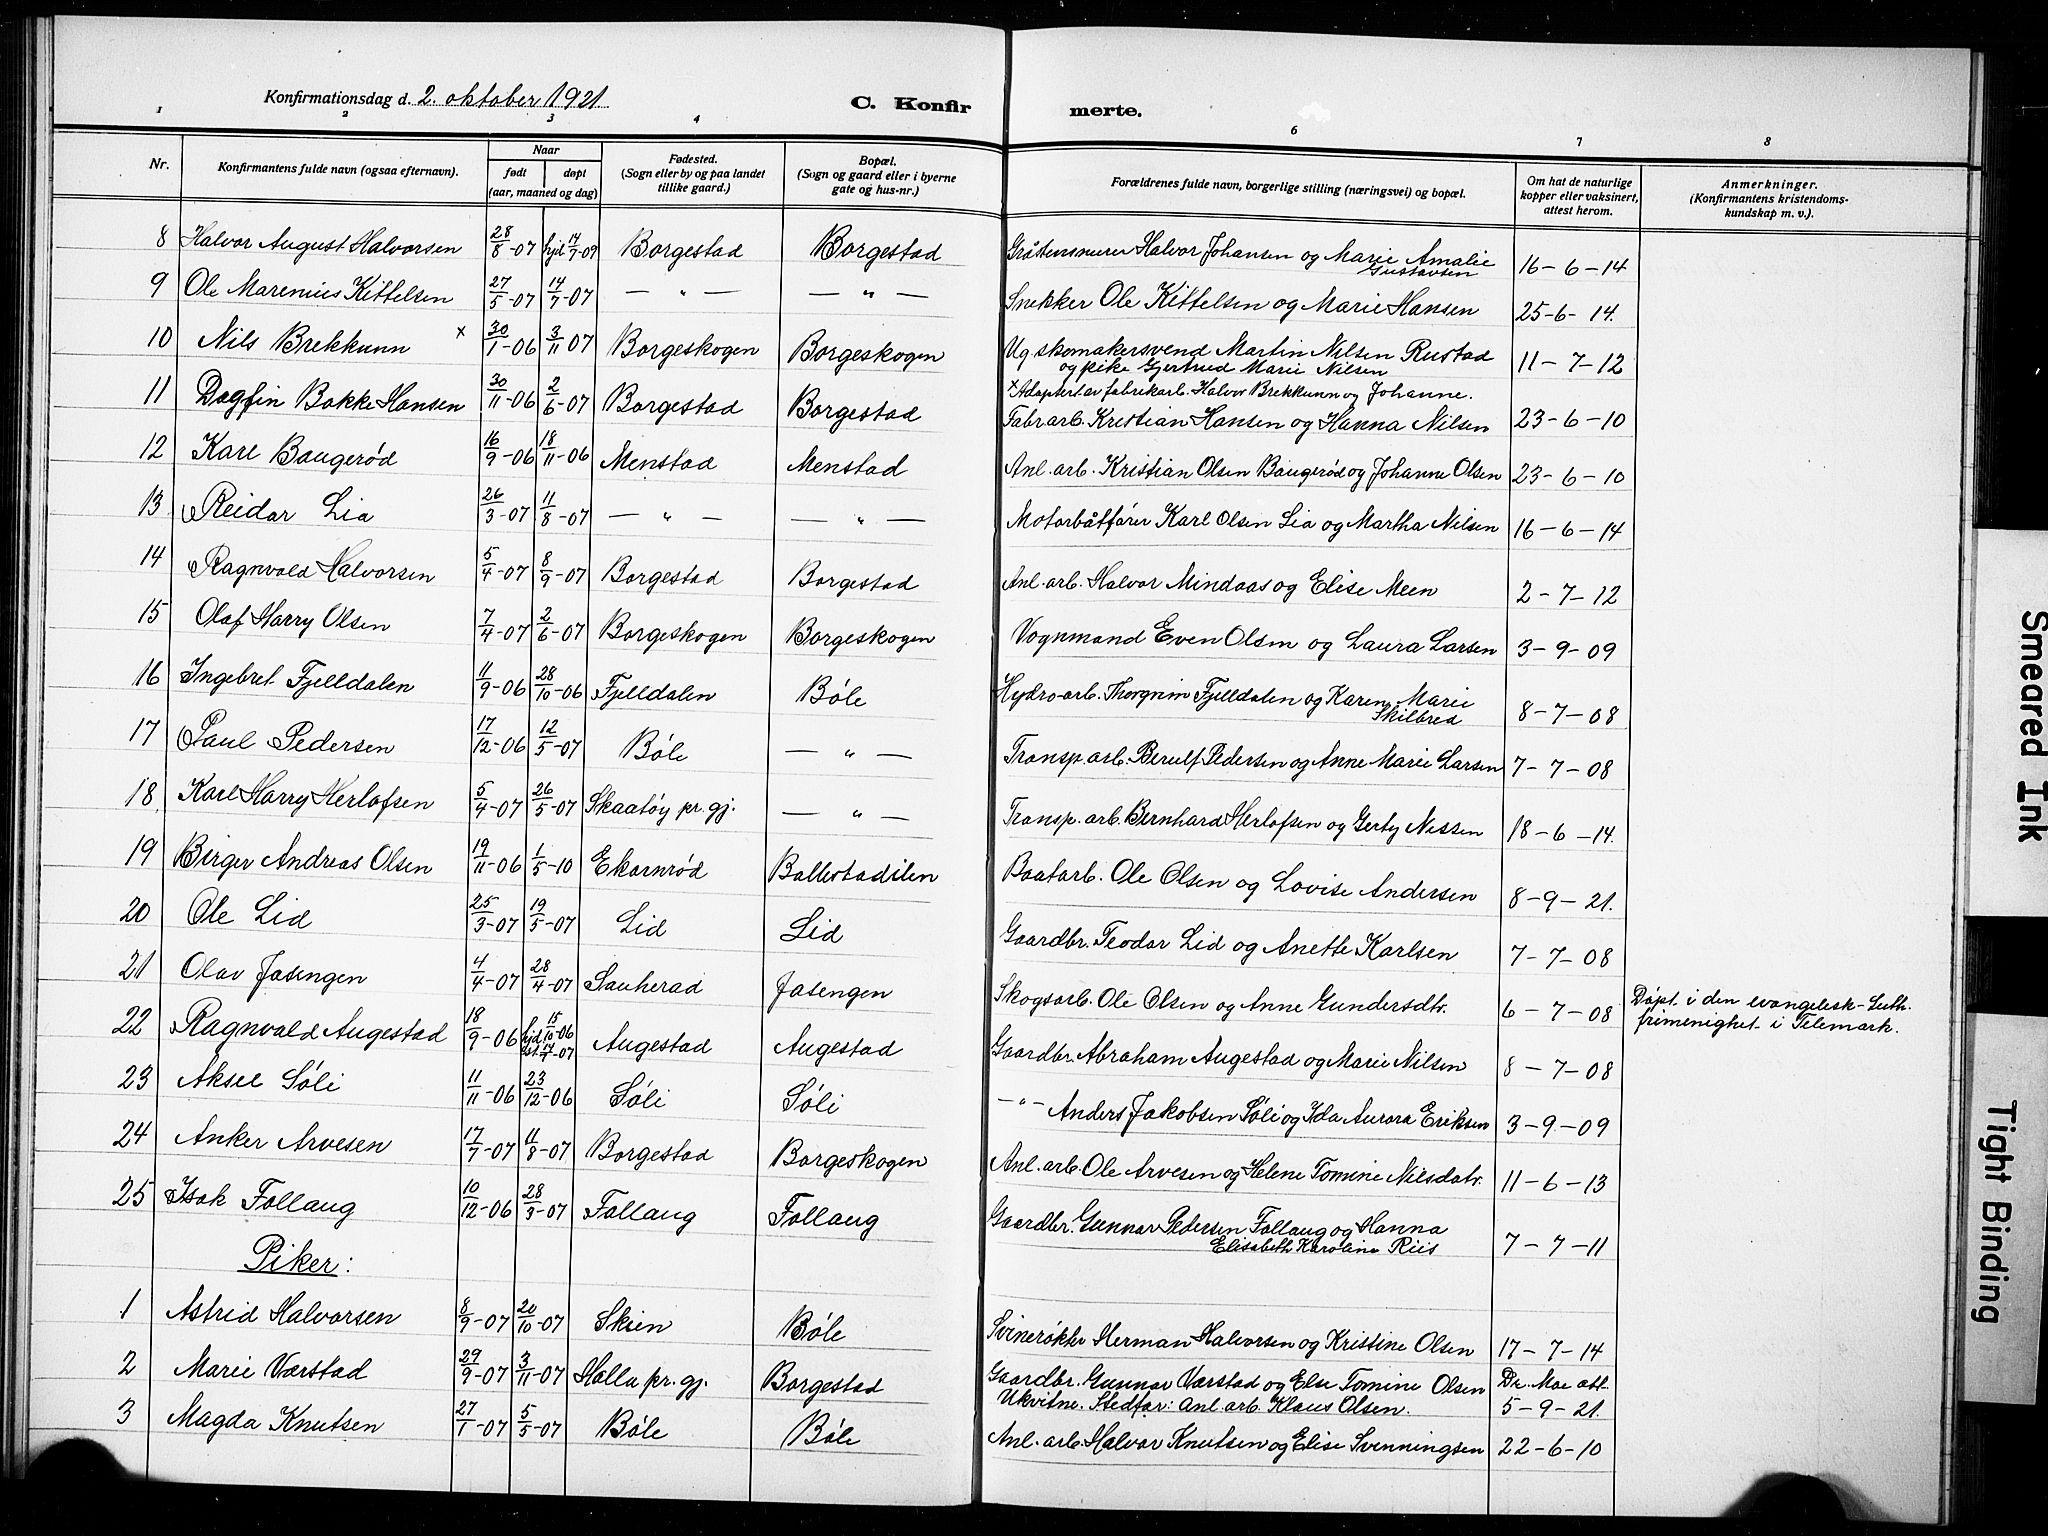 Konfirmationsdag d. 2. oktober 1921
C. Konfirmerte.
1 2 3 4 6 7 8
Nr. Konfirmantens fulde navn (ogsaa efternavn). Naar født døpt (aar, maaned og dag) Fødested. (Sogn eller by og paa landet tillike gaard.) Bopæl. (Sogn og gaard eller i byerne gate og hus-nr.) Forældrenes fulde navn, borgerlige stilling (næringsvei) og bopæl. Om hat de naturlige kopper eller vaksinert, attest herom. Anmerkninger. (Konfirmantens kristendomskundskap m. v.).
8 Halvor August Halvorsen 28/8-07 hjd 14/7-09 Borgestad Borgestad Gråstensmurer Halvor Johansen og Marie Amalie Gustavsen 16-6-14
9 Ole Marenius Kittelsen 27/5-07 14/7-07 — " — — " — Snekker Ole Kittelsen og Marie Hansen 25-6-14.
10 Nils Brekkunn × 30/1-06 3/11 07 Borgeskogen Borgeskogen Ug. skomakersvend Martin Nilsen Rustad og pike Gjertrud Marie Nilsen 11-7-12
× Adoptert av fabrikarb. Halvor Brekkunn og Johanne.
11 Dagfin Bakke Hansen 30/11-06 2/6-07 Borgestad Borgestad Fabr.arb. Kristian Hansen og Hanna Nilsen 23-6-10
12 Karl Baugerød 16/9-06 18/11-06 Menstad Menstad Anl. arb. Kristian Olsen Baugerød og Johanne Olsen 23-6-10
13 Reidar Lia 26/3-07 11/8-07 — " — — " — Motorbåtfører Karl Olsen Lia og Martha Nilsen 16-6-14
14 Ragnvald Halvorsen 5/4-07 8/9-07 Borgestad Borgestad Anl. arb. Halvor Mindaas og Elise Meen 2-7-12
15 Olaf Harry Olsen 7/4-07 2/6-07 Borgeskogen Borgeskogen Vognmand Even Olsen og Laura Larsen 3-9-09
16 Ingebret Fjelldalen 11/9-06 28/10-06 Fjelldalen Bøle Hydro-arb. Thorgrim Fjelldalen og Karen Marie Skilbred 8-7-08
17 Paul Pedersen 17/12-06 12/5-07 Bøle — " — Transp. arb. Berulf Pedersen og Anne Marie Larsen 7-7-08
18 Karl Harry Herlofsen 5/4-07 26/5-07 Skaatøy pr. gj. — " — Transp. arb. Bernhard Herlofsen og Gerty Nissen 18-6-14.
19 Birger Andreas Olsen 19/11-06 1/5-10 Ekornrød Ballestadilen Baatarb. Ole Olsen og Lovise Andersen 8-9-21.
20 Ole Lid 25/3-07 19/5-07 Lid Lid Gaardbr. Teodor Lid og Anette Karlsen 7-7-08
21 Olav Jasengen 4/4-07 28/4-07 Sauherad Jasengen Skogsarb. Ole Olsen og Anne Gundersdtr. 6-7-08 Døpt i den evangelisk-Luth. frimenighet i Telemark.
22 Ragnvald Augestad 18/9-06 hjd 15/10-06 Augestad Augestad Gaardbr. Abraham Augestad og Marie Nilsen 8-7-08
23 Aksel Søli 11/11-06 23/12-06 Søli Søli — " — Anders Jakobsen Søli og Ida Aurora Eriksen 3-9-09
24 Anker Arvesen 17/7-07 11/8-07 Borgestad Borgeskogen Anl. arb. Ole Arvesen og Helene Tomine Nilsdatr. 11-6-13
25 Isak Follaug 10/12-06 28/3-07 Follaug Follaug Gaardbr. Gunnar Pedersen Follaug og Hanna Elisabeth Karoline Riis 7-7-11
Piker:
1 Astrid Halvorsen 8/9-07 20/10-07 Skien Bøle Svinerøkter Herman Halvorsen og Kristine Olsen 17-7-14
2 Marie Værstad 29/9-07 3/11-07 Holla pr. gj. Borgestad Gaardbr. Gunnar Værstad og Else Tomine Olsen Ukvitne. Stedfar: Anl. arb. Klaus Olsen. Dr. Moe att. 5-9-21.
3 Magda Knutsen 27/1-07 5/5-07 Bøle Bøle Anl. arb. Halvor Knutsen og Elise Svenningsen 22-6-10
Smeared Ink
Tight Binding